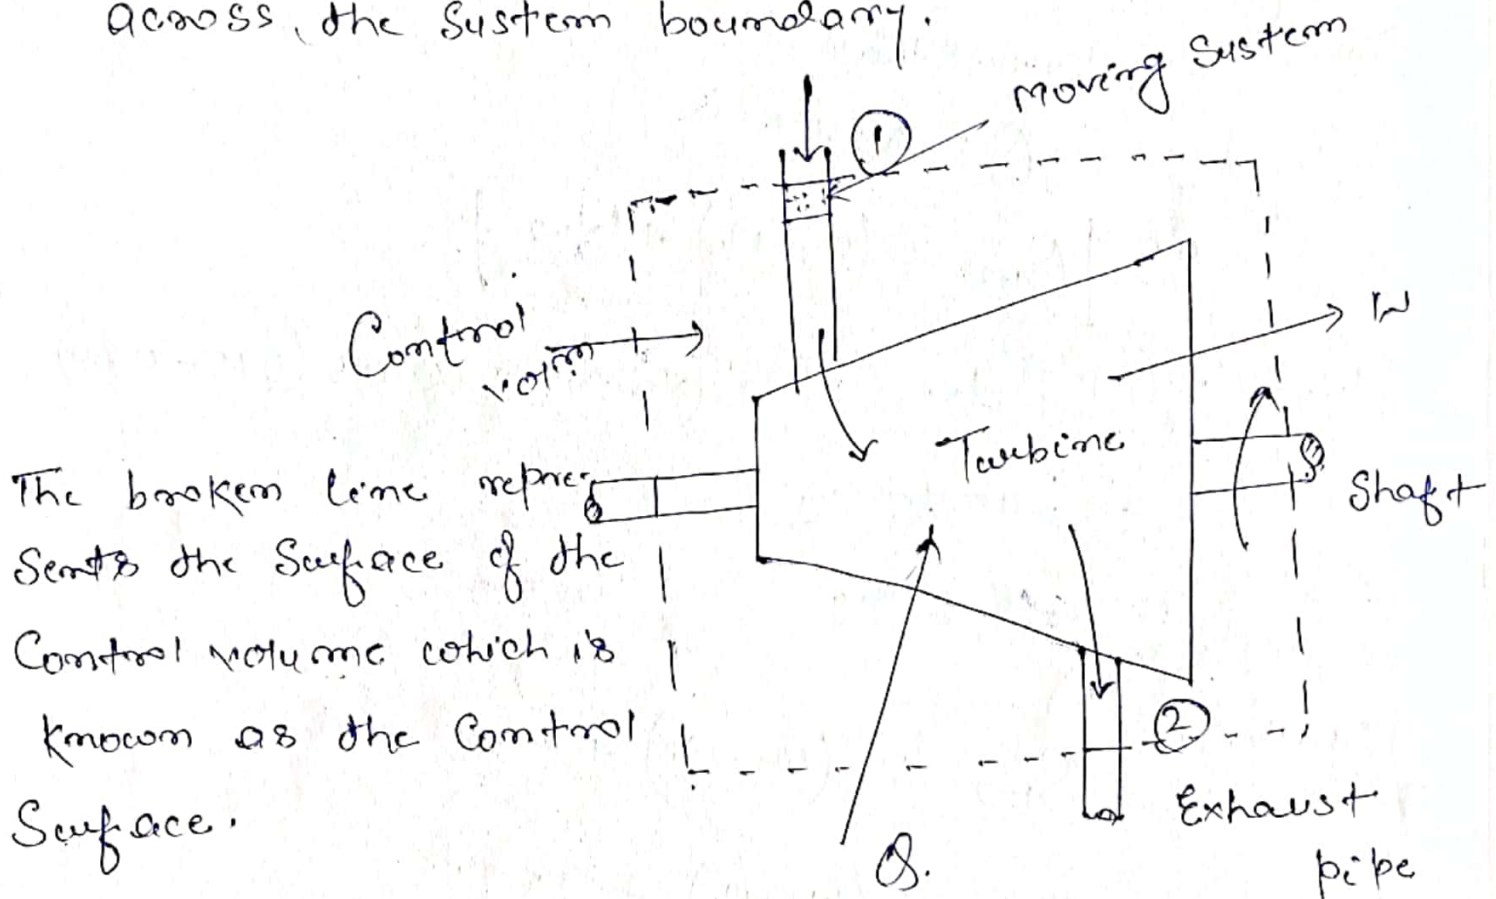 across, the System boundary.
moving System
1
Control
volm
W
Turbine
Shaft
The broken line repre-
sents the Surface of the
Control volume which is
known as the Control
Surface.
2
Exhaust
pipe
Q.